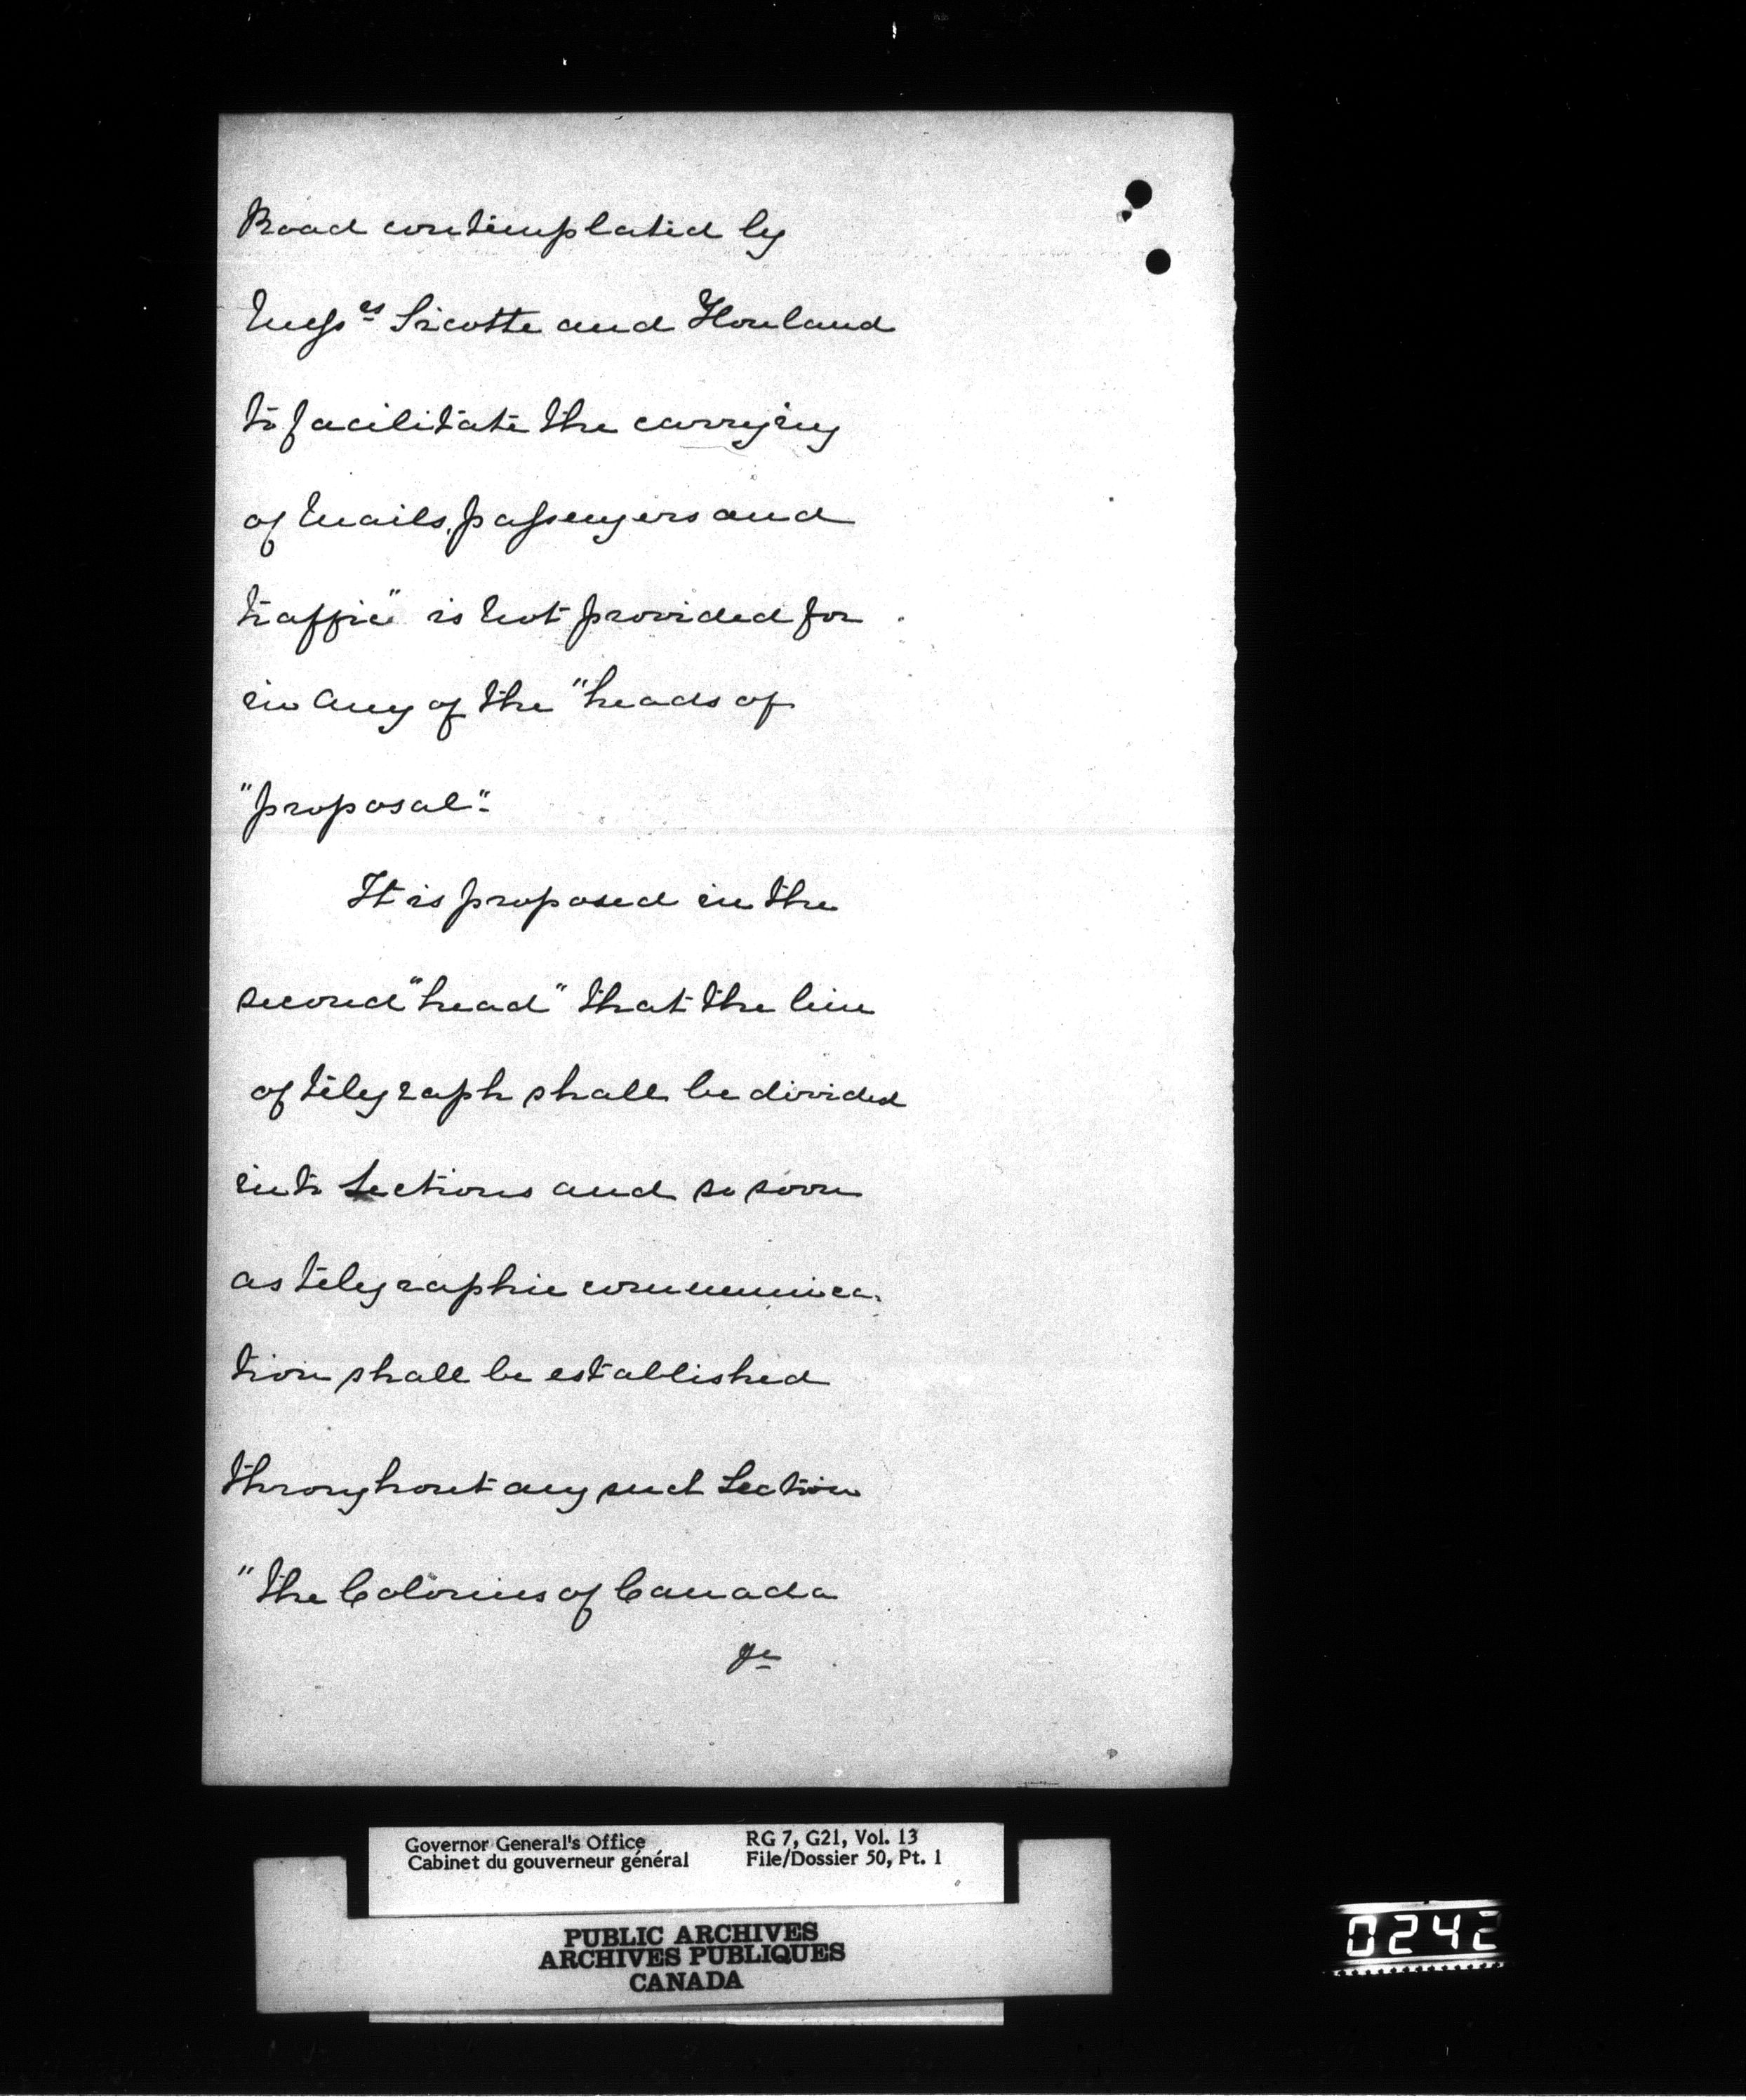 Road contemplated by
Messrs Sicotte and Howland
to facilitate the carrying
of Mails, passengers and
traffic" is not provided for
in any of the "heads of
"proposal".
It is proposed in the
second "head" that the line
of telegraph shall be divided
into Sections and so soon
as telegraphic communica-
tion shall be established
throughout any such Section
"the Colonies of Canada
Governor General's Office
Cabinet du gouverneur général
RG 7, G21, Vol. 13
File/Dossier 50, Pt. 1
PUBLIC ARCHIVES
ARCHIVES PUBLIQUES
CANADA
0242